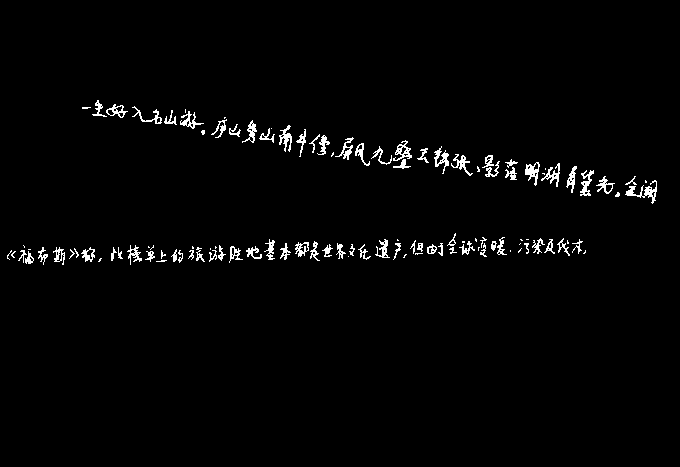 一生好入名山游。庐山秀出南斗傍,屏风九叠云锦张,影落明湖青黛光。金阙
《福布斯》称,此榜单上的旅游胜地基本都是世界文化遗产,但由于全球变暖、污染及伐木,